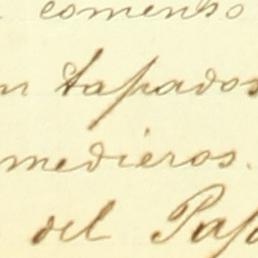 comenso
n tapados
medieros.
del Pap